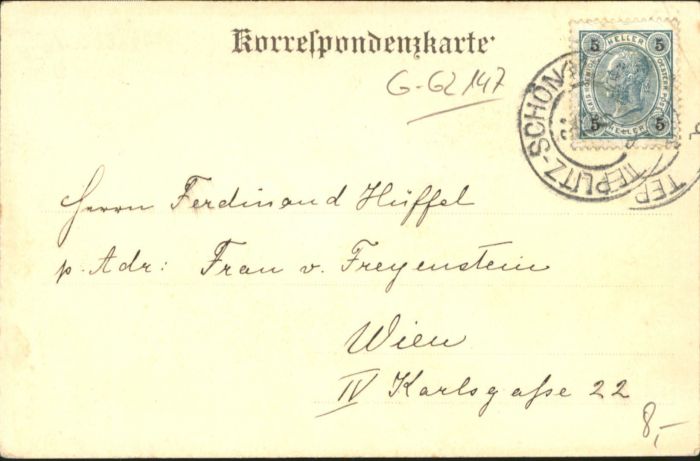 Korrespondenzkarte.
G-62147
5 HELLER 5
5 HELLER 5
TEPLITZ-SCHÖN
TEP
Herrn Ferdinand Hüffel
p. Adr: Frau v. Freyenstein
Wien
IV Karlsgaße 22
8,-